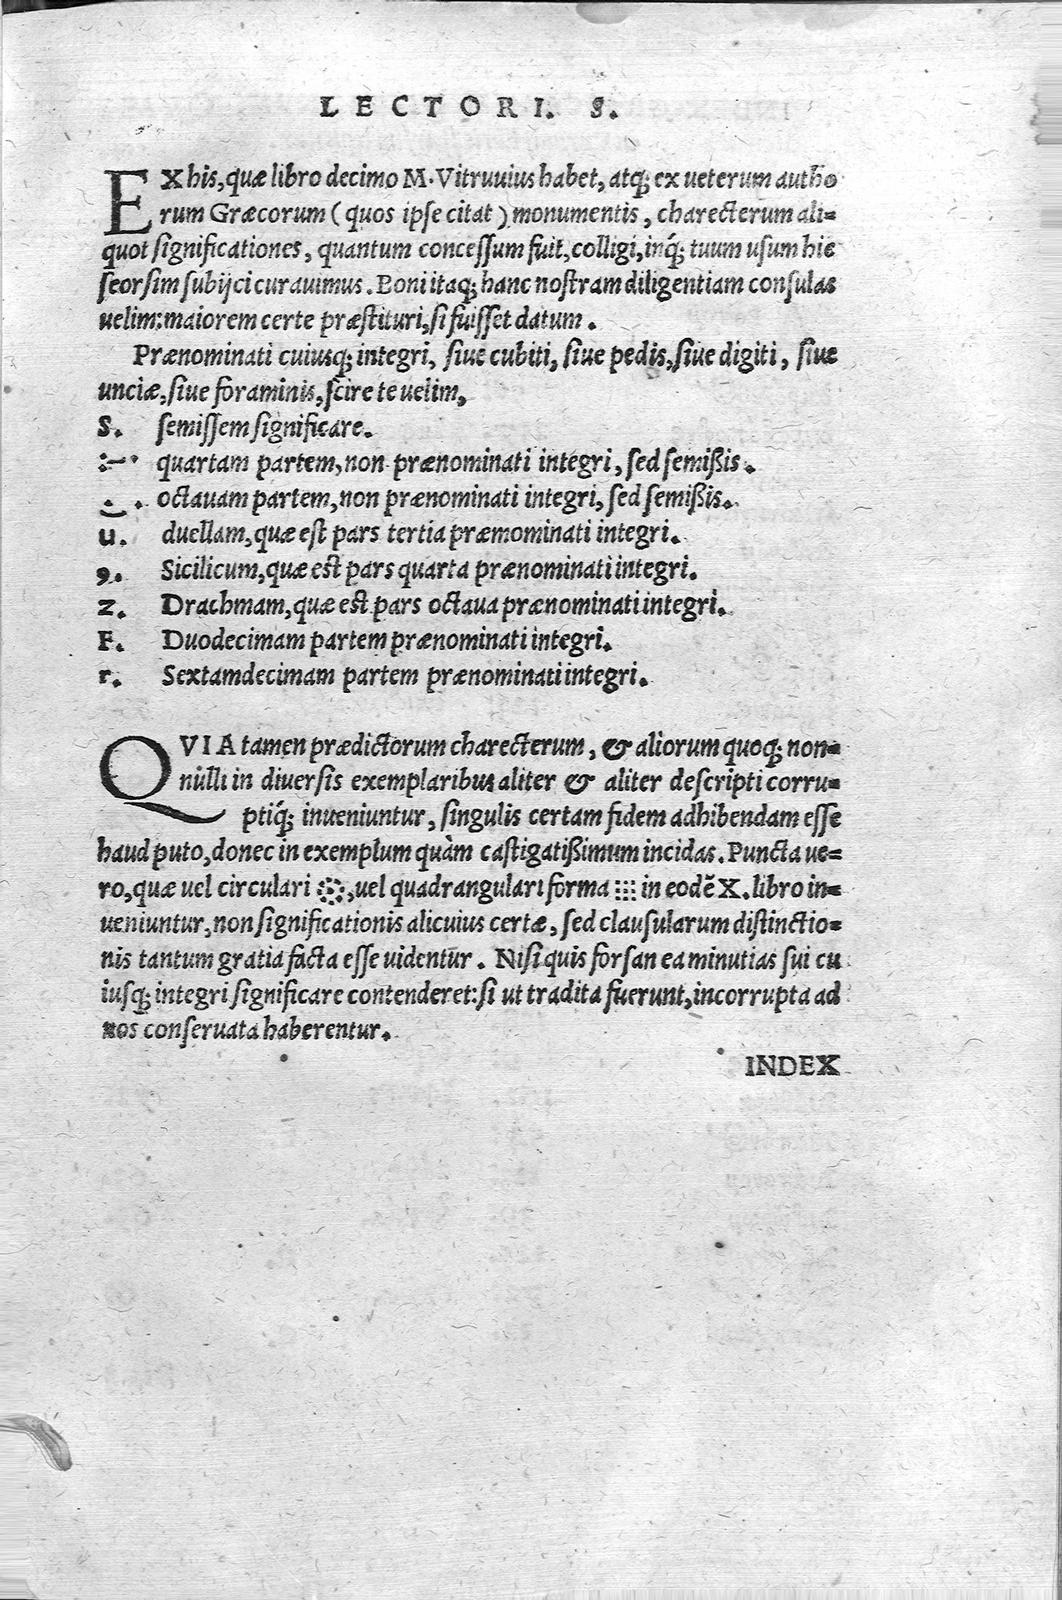 LECTORI. S.
EX his, quæ libro decimo M. Vitruuius habet, atq; ex ueterum autho
rum Græcorum (quos ipse citat) monumentis, charecterum ali=
quot significationes, quantum concessum fuit, colligi, inq́; tuum usum hic
seorsim subijci curauimus. Boni itaq; hanc nostram diligentiam consulas
uelim: maiorem certe præstituri, si fuisset datum.
Prænominati cuiusq; integri, siue cubiti, siue pedis, siue digiti, siue
unciæ, siue foraminis, scire te uelim,
S. semissem significare.
:–· quartam partem, non prænominati integri, sed semißis.
octauam partem, non prænominati integri, sed semißis.
u. duellam, quæ est pars tertia præmominati integri.
9. Sicilicum, quæ est pars quarta prænominati integri.
z. Drachmam, quæ est pars octaua prænominati integri.
F. Duodecimam partem prænominati integri.
r. Sextamdecimam partem prænominati integri.
QVIA tamen prædictorum charecterum, & aliorum quoq; non=
nulli in diuersis exemplaribus aliter & aliter descripti corru=
ptiq́; inueniuntur, singulis certam fidem adhibendam esse
haud puto, donec in exemplum quàm castigatißimum incidas. Puncta ue=
ro, quæ uel circulari ҉, uel quadrangulari forma ⁝⁝⁝ in eodē X. libro in=
ueniuntur, non significationis alicuius certæ, sed clausularum distinctio=
nis tantum gratia facta esse uidentur. Nisi quis forsan ea minutias sui cu
iusq; integri significare contenderet: si ut tradita fuerunt, incorrupta ad
nos conseruata haberentur.
INDEX